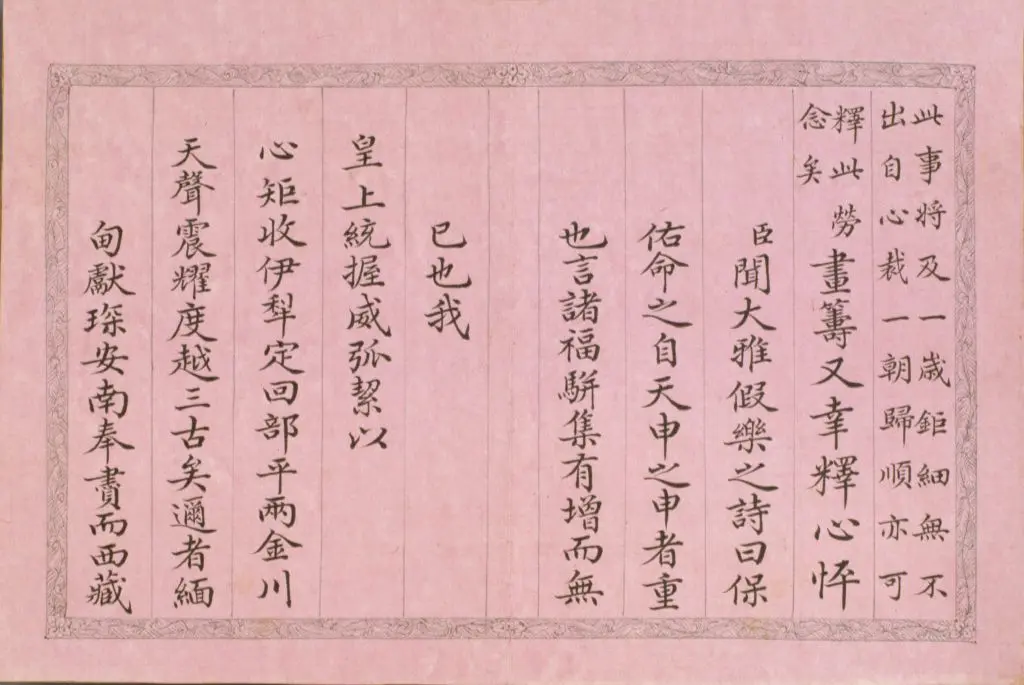 此事将及一歳鉅細無不
出自心裁一朝歸順亦可
釋此勞
念矣
畫籌又幸釋心怦
臣聞大雅假樂之詩曰保
佑命之自天申之申者重
也言諸福駢集有增而無
已也我
皇上統握威弧絜以
心矩收伊犂定回部平兩金川
天聲震耀度越三古矣邇者緬
甸獻琛安南奉賮而西藏